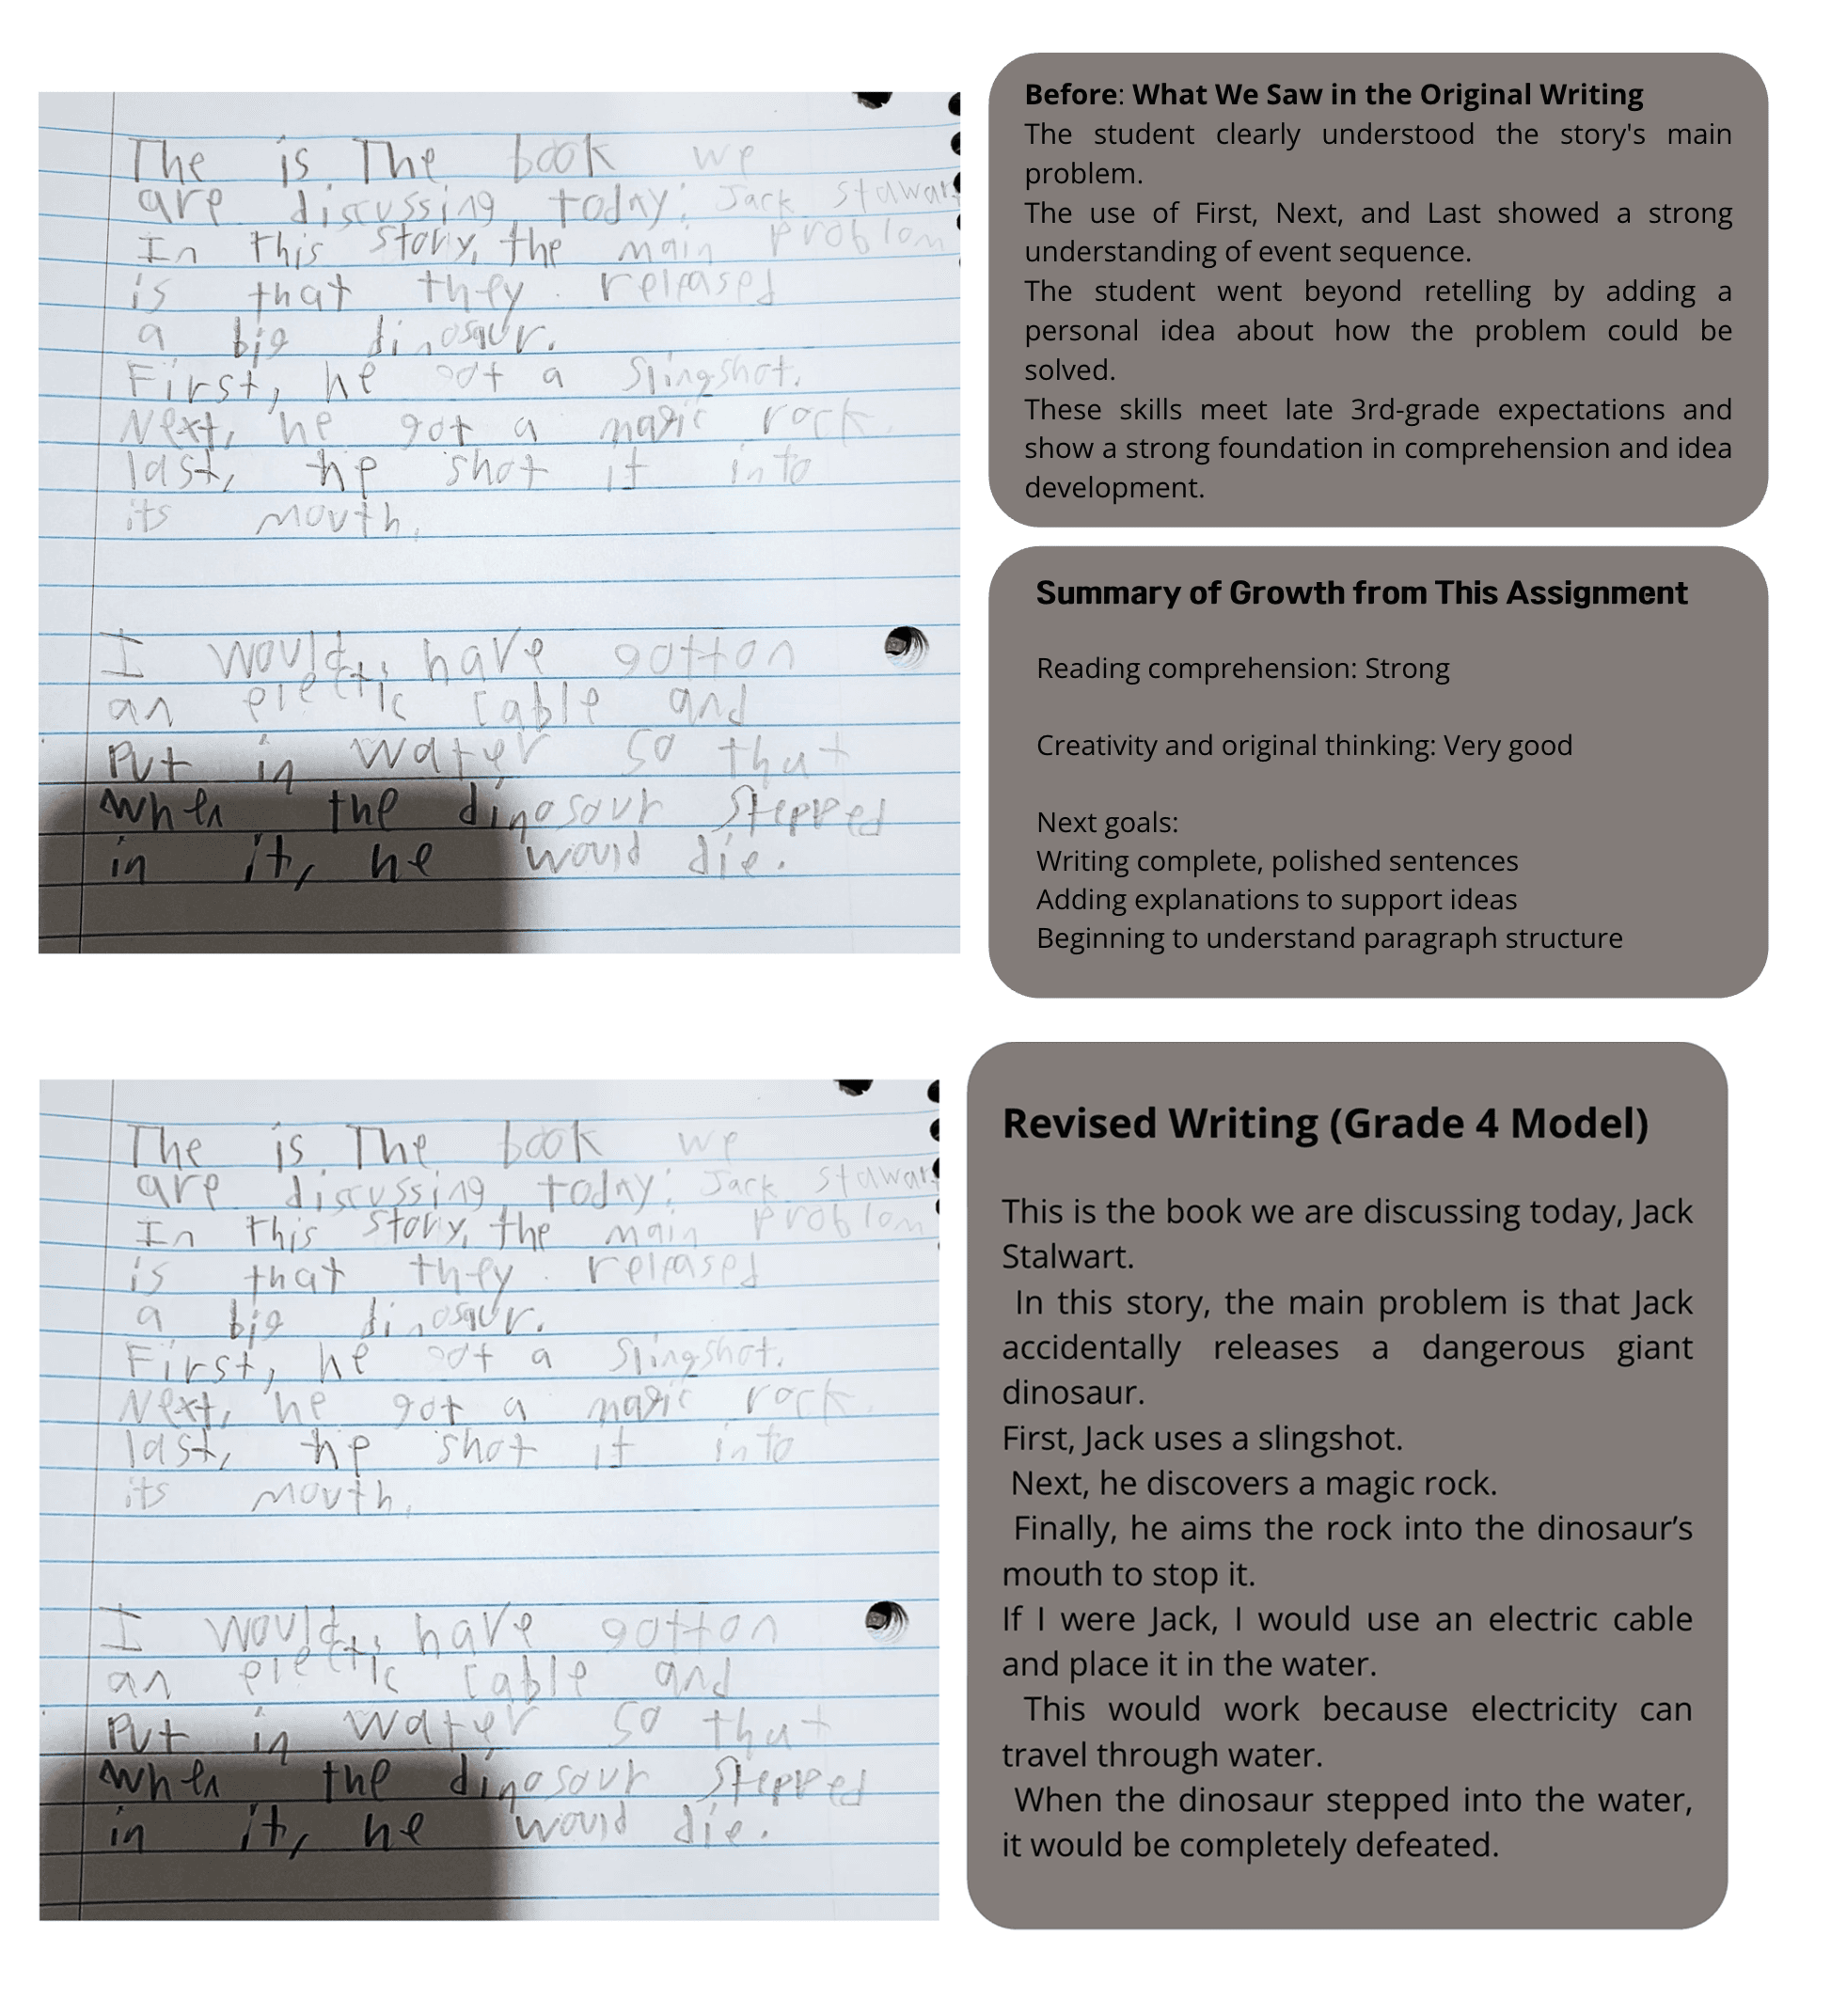 The is The book we
are discussing today: Jack Stawar
In this story, the main problom
is that they released
a big dinosaur.
First, he got a slingshot.
Next, he got a magic rock.
last, he shot it into
its mouth.
I would have gotton
an electic cable and
put in water so that
when the dinosaur stepped
in it, he would die.
Before: What We Saw in the Original Writing
The student clearly understood the story's main
problem.
The use of First, Next, and Last showed a strong
understanding of event sequence.
The student went beyond retelling by adding a
personal idea about how the problem could be
solved.
These skills meet late 3rd-grade expectations and
show a strong foundation in comprehension and idea
development.
Summary of Growth from This Assignment
Reading comprehension: Strong
Creativity and original thinking: Very good
Next goals:
Writing complete, polished sentences
Adding explanations to support ideas
Beginning to understand paragraph structure
The is The book we
are discussing today: Jack Stawar
In this story, the main problom
is that they released
a big dinosaur.
First, he got a slingshot.
Next, he got a magic rock.
last, he shot it into
its mouth.
I would have gotton
an electic cable and
put in water so that
when the dinosaur stepped
in it, he would die.
Revised Writing (Grade 4 Model)
This is the book we are discussing today, Jack
Stalwart.
In this story, the main problem is that Jack
accidentally releases a dangerous giant
dinosaur.
First, Jack uses a slingshot.
Next, he discovers a magic rock.
Finally, he aims the rock into the dinosaur’s
mouth to stop it.
If I were Jack, I would use an electric cable
and place it in the water.
This would work because electricity can
travel through water.
When the dinosaur stepped into the water,
it would be completely defeated.